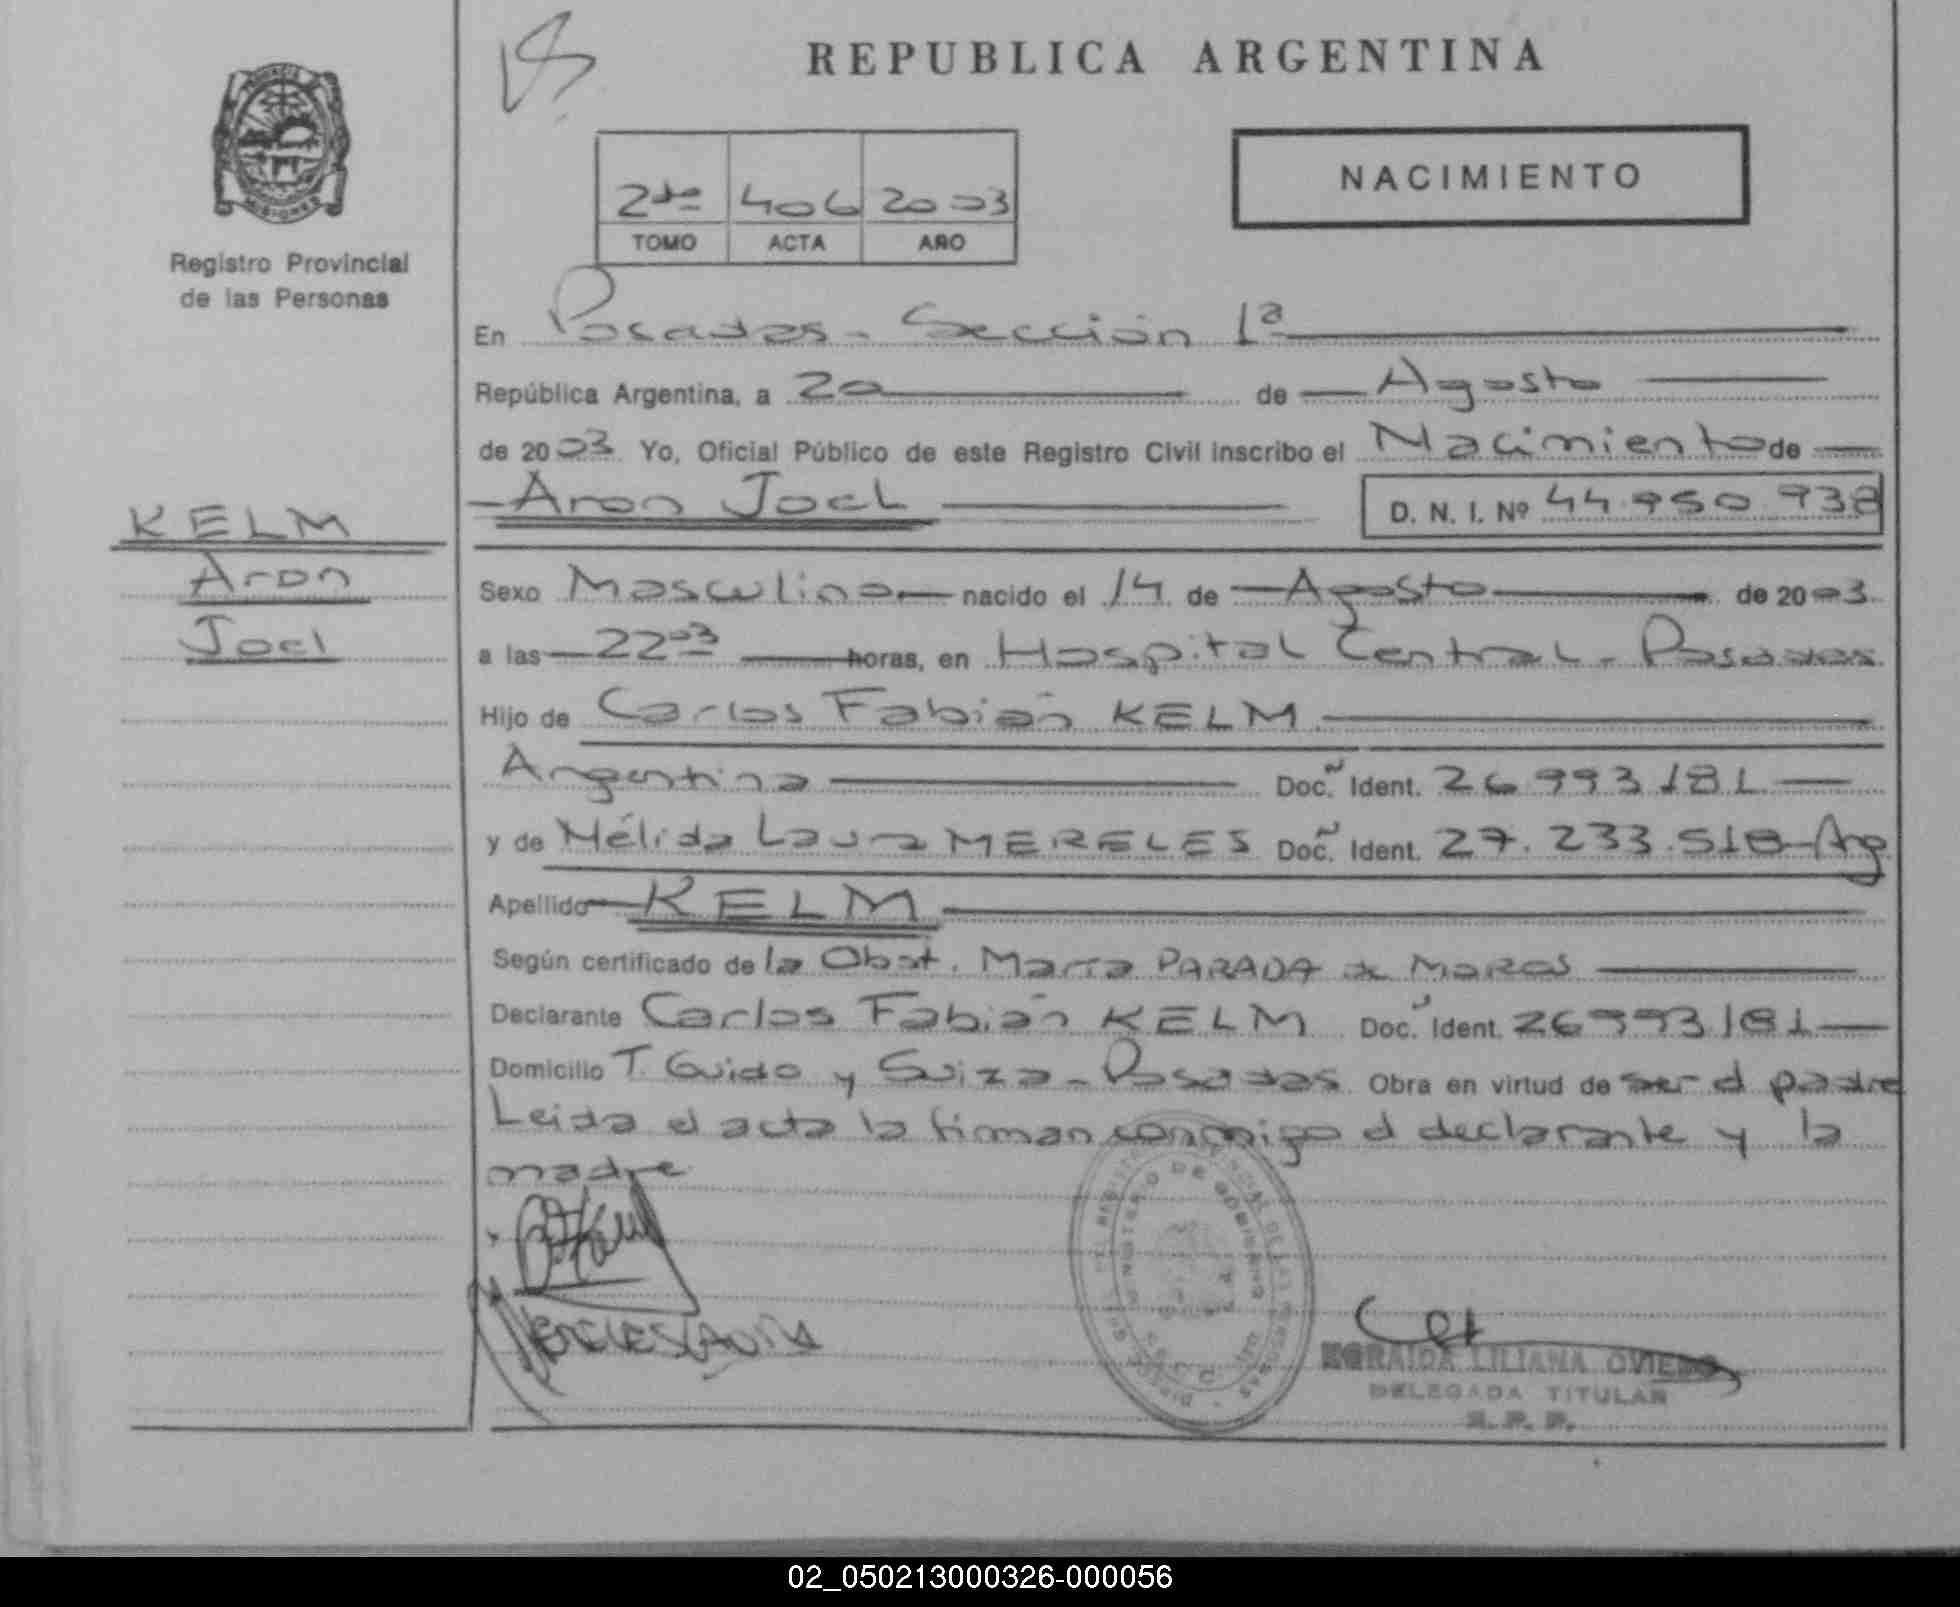 REPUBLICA ARGENTINA
NACIMIENTO
2do 406 2003
TOMO ACTA AÑO
MISIONES
Registro Provincial
de las Personas
KELM
Aron
Joel
En Posadas - Sección 1ª
República Argentina, a 20 de Agosto
de 2003 Yo, Oficial Público de este Registro Civil inscribo el Nacimiento de
Aron Joel D. N. I. Nº 44.950.938
Sexo Masculino nacido el 14 de Agosto de 2003
a las 22 03 horas, en Hospital Central - Posadas
Hijo de Carlos Fabián KELM
Argentina Doc. Ident. 26993181
y de Nélida Laura MERELES Doc. Ident. 27.233.518 - Arg
Apellido KELM
Según certificado de la Obst. María PARADA de
Declarante Carlos Fabián KELM Doc. Ident. 26993181
Domicilio T. Guido y Suiza - Posadas Obra en virtud de ser el padre
Leida el acta la firman conmigo el declarante y la
madre
MERELES LAURA
LILIANA OVIEDO
DELEGADA TITULAR
R. P. P.
02_050213000326-000056